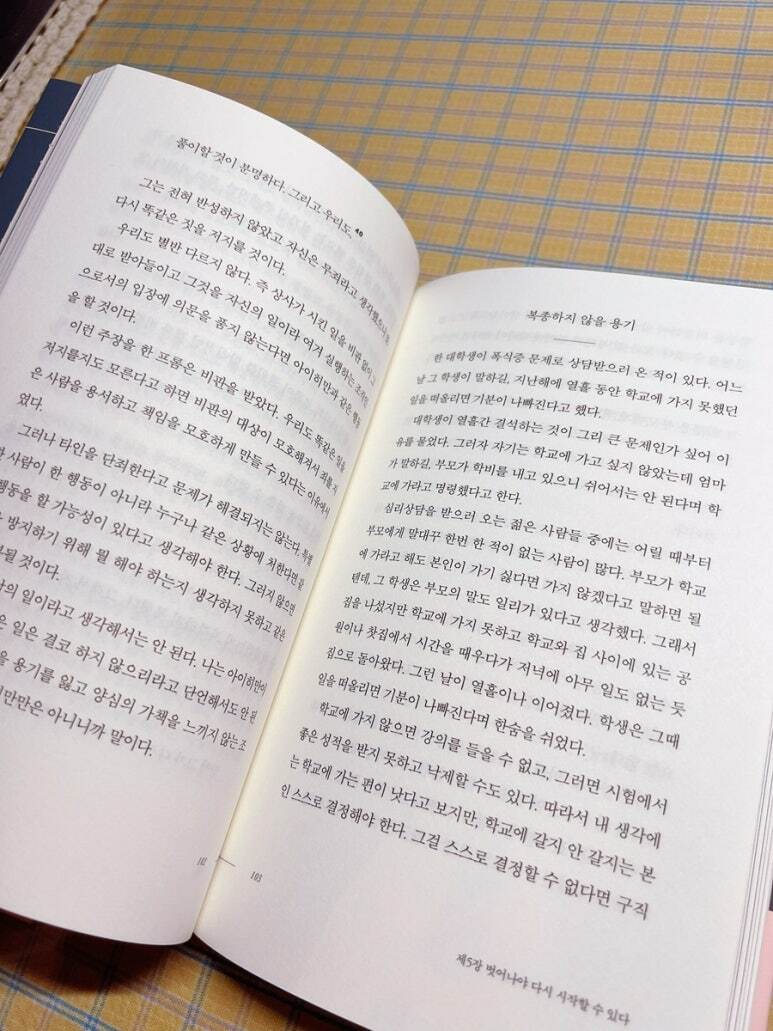 풀이할 것이 분명하다. 그리고 우리도. 40
그는 전혀 반성하지 않았고 자신은 무죄라고 생각했으니
다시 똑같은 짓을 저지를 것이다.
우리도 별반 다르지 않다. 즉 상사가 시킨 일을 비판 없이
대로 받아들이고 그것을 자신의 일이라 여겨 실행하는 조직인
으로서의 입장에 의문을 품지 않는다면 아이히만과 같은 행동
을 할 것이다.
이런 주장을 한 프롬은 비판을 받았다. 우리도 똑같은 일을
저지를지도 모른다고 하면 비판의 대상이 모호해져서 죄를 지
은 사람을 용서하고 책임을 모호하게 만들 수 있다는 이유에서
였다.
그러나 타인을 단죄한다고 문제가 해결되지는 않는다. 특별
한 사람이 한 행동이 아니라 누구나 같은 상황에 처한다면 같
행동을 할 가능성이 있다고 생각해야 한다. 그러지 않으면
을 방지하기 위해 뭘 해야 하는지 생각하지 못하고 같은
될 것이다.
의 일이라고 생각해서는 안 된다. 나는 아이히만이
은 일은 결코 하지 않으리라고 단언해서도 안 된
을 용기를 잃고 양심의 가책을 느끼지 않는 조
히만만은 아니니까 말이다.
102
복종하지 않을 용기
한 대학생이 폭식증 문제로 상담받으러 온 적이 있다. 어느
날 그 학생이 말하길, 지난해에 열흘 동안 학교에 가지 못했던
일을 떠올리면 기분이 나빠진다고 했다.
대학생이 열흘간 결석하는 것이 그리 큰 문제인가 싶어 이
유를 물었다. 그러자 자기는 학교에 가고 싶지 않았는데 엄마
가 말하길, 부모가 학비를 내고 있으니 쉬어서는 안 된다며 학
교에 가라고 명령했다고 한다.
심리상담을 받으러 오는 젊은 사람들 중에는 어릴 때부터
부모에게 말대꾸 한번 한 적이 없는 사람이 많다. 부모가 학교
에 가라고 해도 본인이 가기 싫다면 가지 않겠다고 말하면 될
텐데, 그 학생은 부모의 말도 일리가 있다고 생각했다. 그래서
집을 나섰지만 학교에 가지 못하고 학교와 집 사이에 있는 공
원이나 찻집에서 시간을 때우다가 저녁에 아무 일도 없는 듯
집으로 돌아왔다. 그런 날이 열흘이나 이어졌다. 학생은 그때
일을 떠올리면 기분이 나빠진다며 한숨을 쉬었다.
학교에 가지 않으면 강의를 들을 수 없고, 그러면 시험에서
좋은 성적을 받지 못하고 낙제할 수도 있다. 따라서 내 생각에
는 학교에 가는 편이 낫다고 보지만, 학교에 갈지 안 갈지는 본
인 스스로 결정해야 한다. 그걸 스스로 결정할 수 없다면 구직
103
제5장 벗어나야 다시 시작할 수 있다